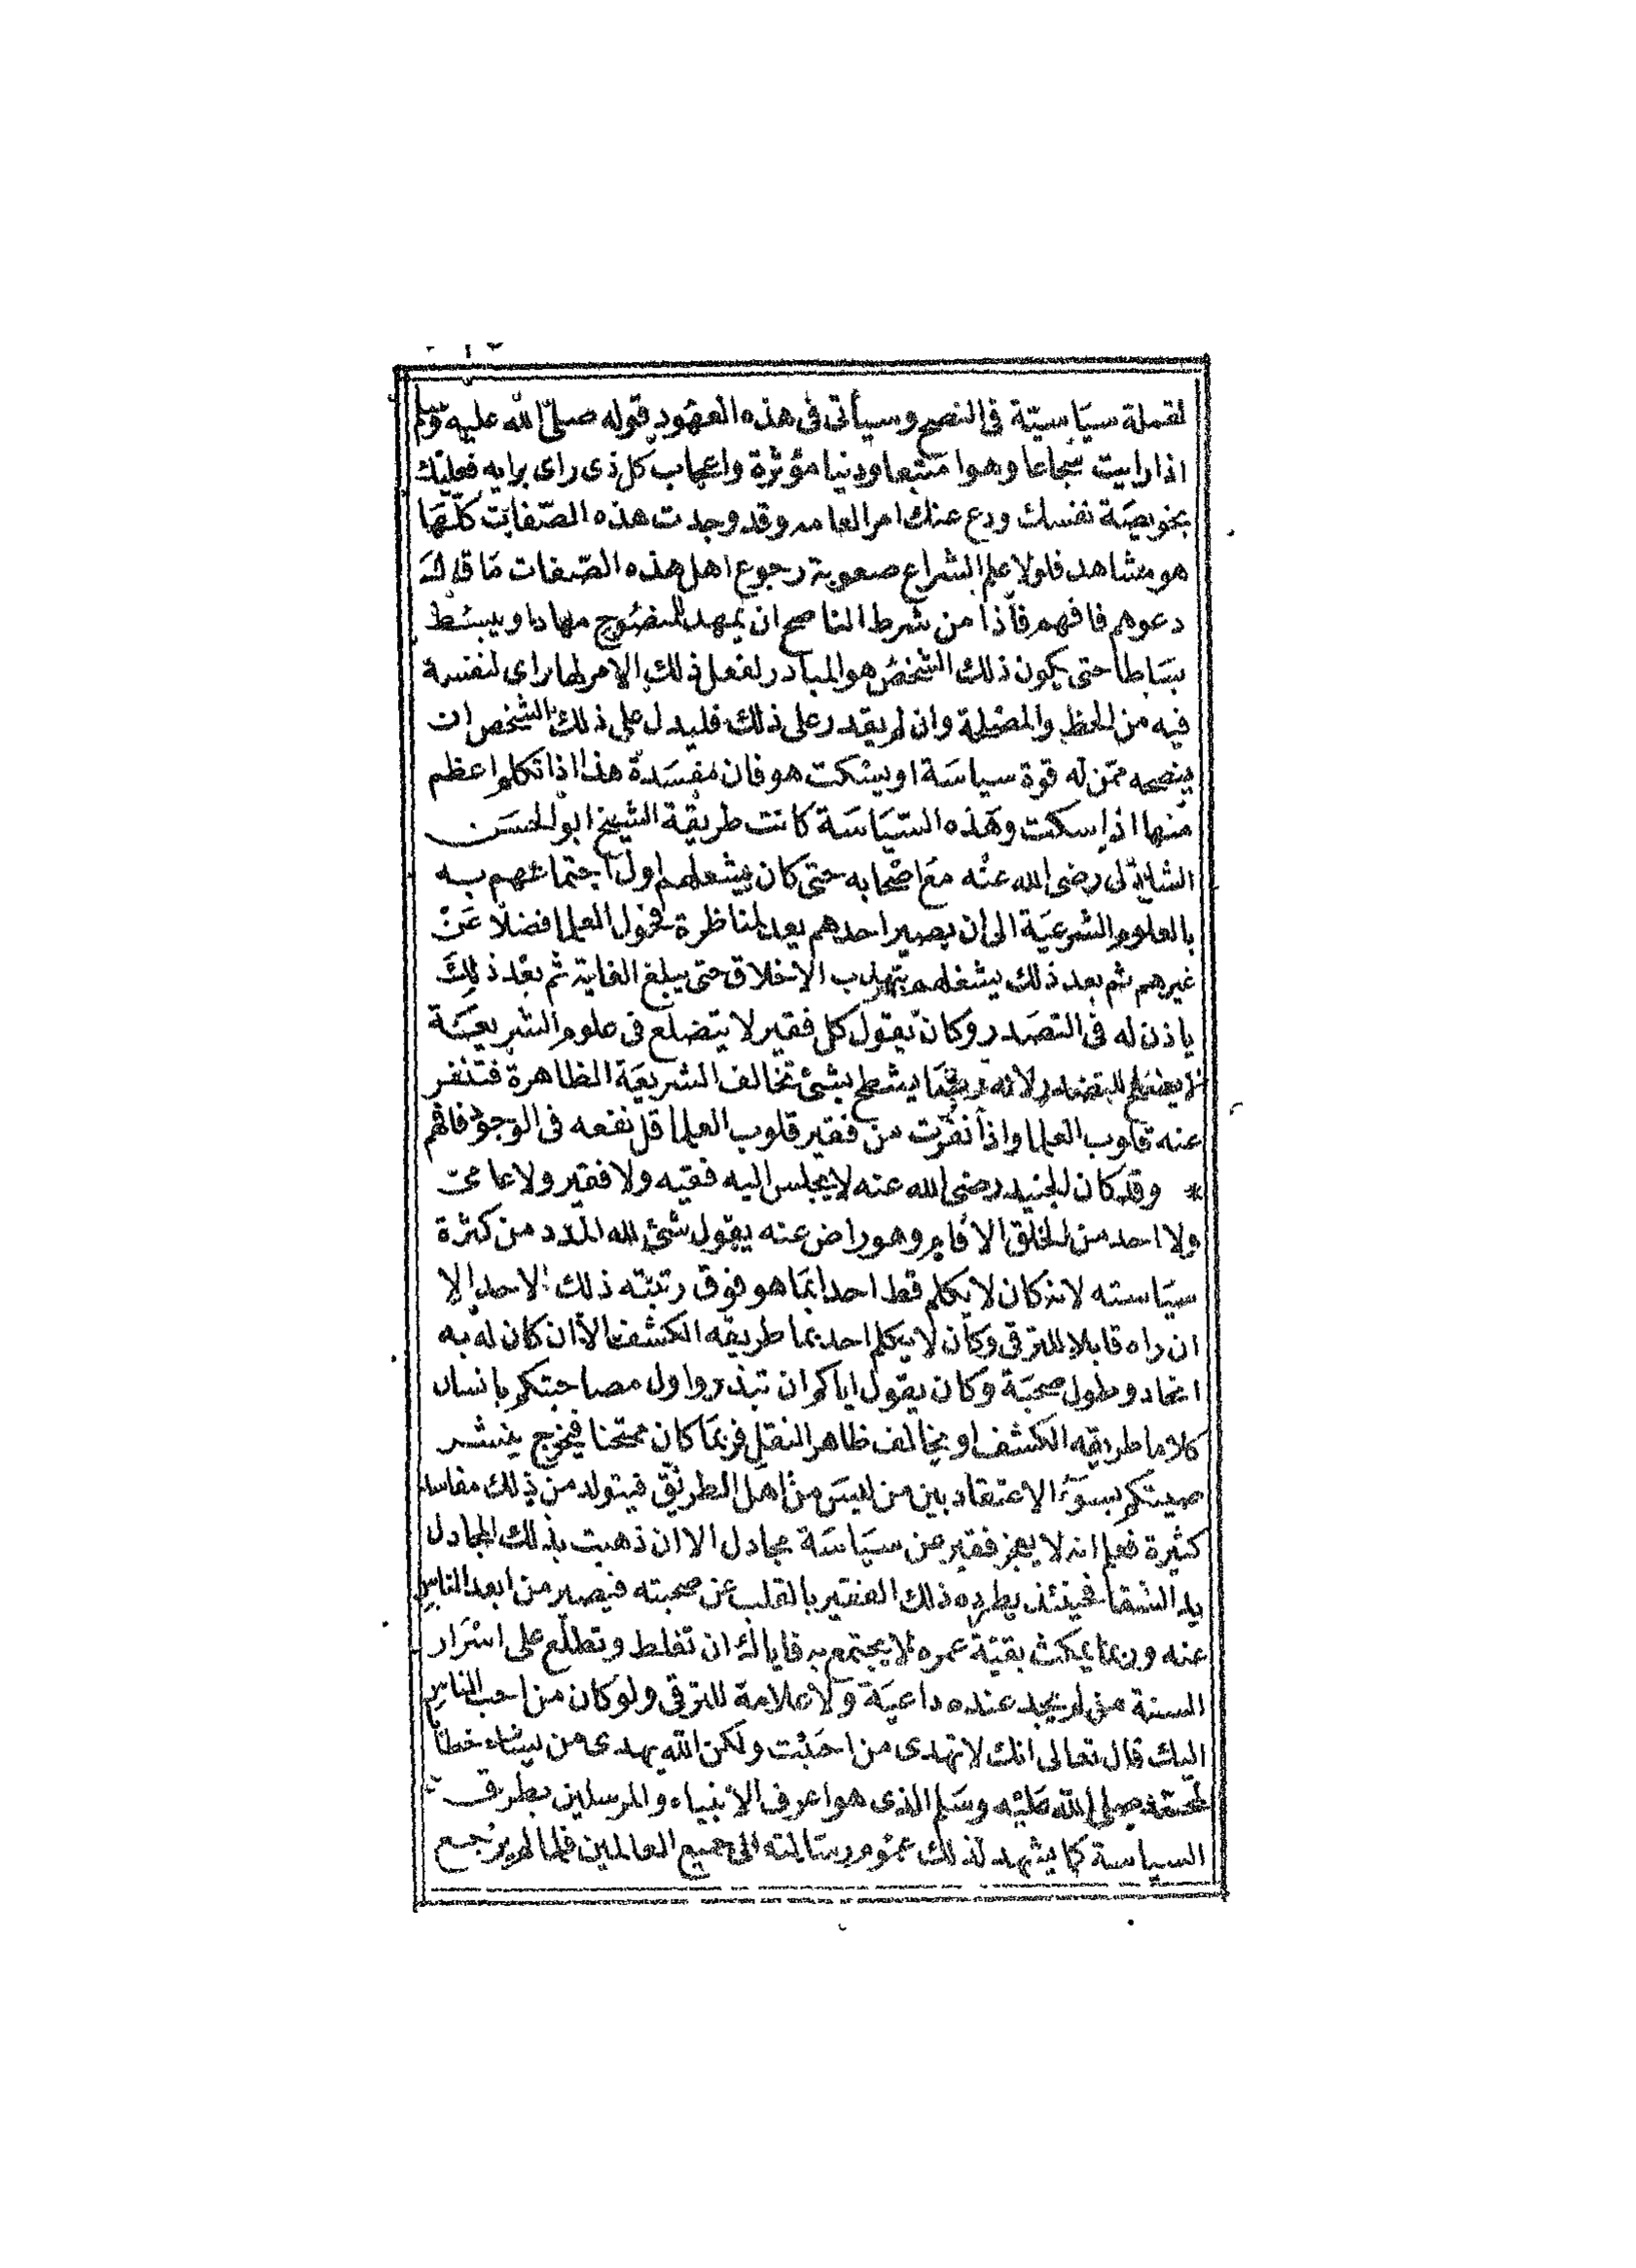 لقملة سياستة فى النصح وسيأتى فى هذه العهود قوله صلى الله عليه وسلم
اذا رايت شجاعا وهوا متبعا ودنيا مؤثرة واعجاب كل ذى راى برايه فعليك
بخويصة نفسك ودع عنك امر العامه وقد وجدت هذه الصفات كلها
هو مشاهد فلولا علم الشراع صعوبة رجوع اهل هذه الصفات ما قال لك
دعوهم فافهم فاذا من شرط الناصح ان يمهد للمنصوح مهادا ويبسط
بساطا حتى يكون ذلك الشخص هو المبادر لفعل ذلك الامر لما راى لنفسه
فيه من الحظ والمصلحة وان لم يقدر على ذلك فليدل على ذلك الشخص ان
ينصحه ممن له قوة سياسة او يسكت هو فان مفسدة هذا اذا تكلم اعظم
منها اذا سكت وهذه السياسة كانت طريقة الشيخ ابو الحسن
الشاذلى رضى الله عنه مع اصحابه حتى كان يشغلهم اول اجتماعهم به
بالعلوم الشرعية الى ان يصير احدهم يعد لمناظرة فحول العلما فضلا عن
غيرهم ثم بعد ذلك يشغلهم بتهذيب الاخلاق حتى يبلغ الغاية ثم بعد ذلك
ياذن له فى التصدر وكان يقول كل فقير لا يتضلع فى علوم الشريعة
لا يصلح للتصدر لانه ربما يشطح بشئ تخالف الشريعة الظاهرة فتنفر
عنه قلوب العلما واذا نفرت من فقير قلوب العلما قل نفعه فى الوجود فافهم
* وقد كان الجنيد رضى الله عنه لا يجلس اليه فقيه ولا فقير ولا عامى
ولا احد من الخلق الا قام وهو راض عنه يقول شئ لله المدد من كثرة
سياسته لانه كان لا يكلم قط احدا بما هو فوق رتبته ذلك الاحد الا
ان راه قابلا للترقى وكان لا يكلم احد بما طريقه الكشف الا ان كان له به
اتحاد وطول صحبة وكان يقول اياكم ان تبذروا اول مصاحبتكم بانسان
كلاما طريقه الكشف او يخالف ظاهر النقل فربما كان ممتحنا فيخرج ينشر
صيتكم بسوء الاعتقاد بين من ليس من اهل الطريق فيتولد من ذلك مفاسد
كثيرة فعلم انه لا يعجز فقير عن سياسة مجادل الا ان ذهبت بذلك المجادل
يد الشقا فحينئذ يطرده ذلك الفقير بالقلب عن صحبته فيصير من ابعد الناس
عنه وربما يمكث بقية عمره لا يجتمع به فاياك ان تغلط وتطلع على اسرار
السنة من لم يجد عنده داعية ولا علامة للترقى ولو كان من احب الناس
اليك قال تعالى انك لا تهدى من احببت ولكن الله يهدى من يشاء خطا
لمحمد صلى الله عليه وسلم الذى هو اعرف الانبياء والمرسلين بطرق
السياسة كما يشهد لذلك عموم رسالته الى جميع العالمين فلما لم يرجع